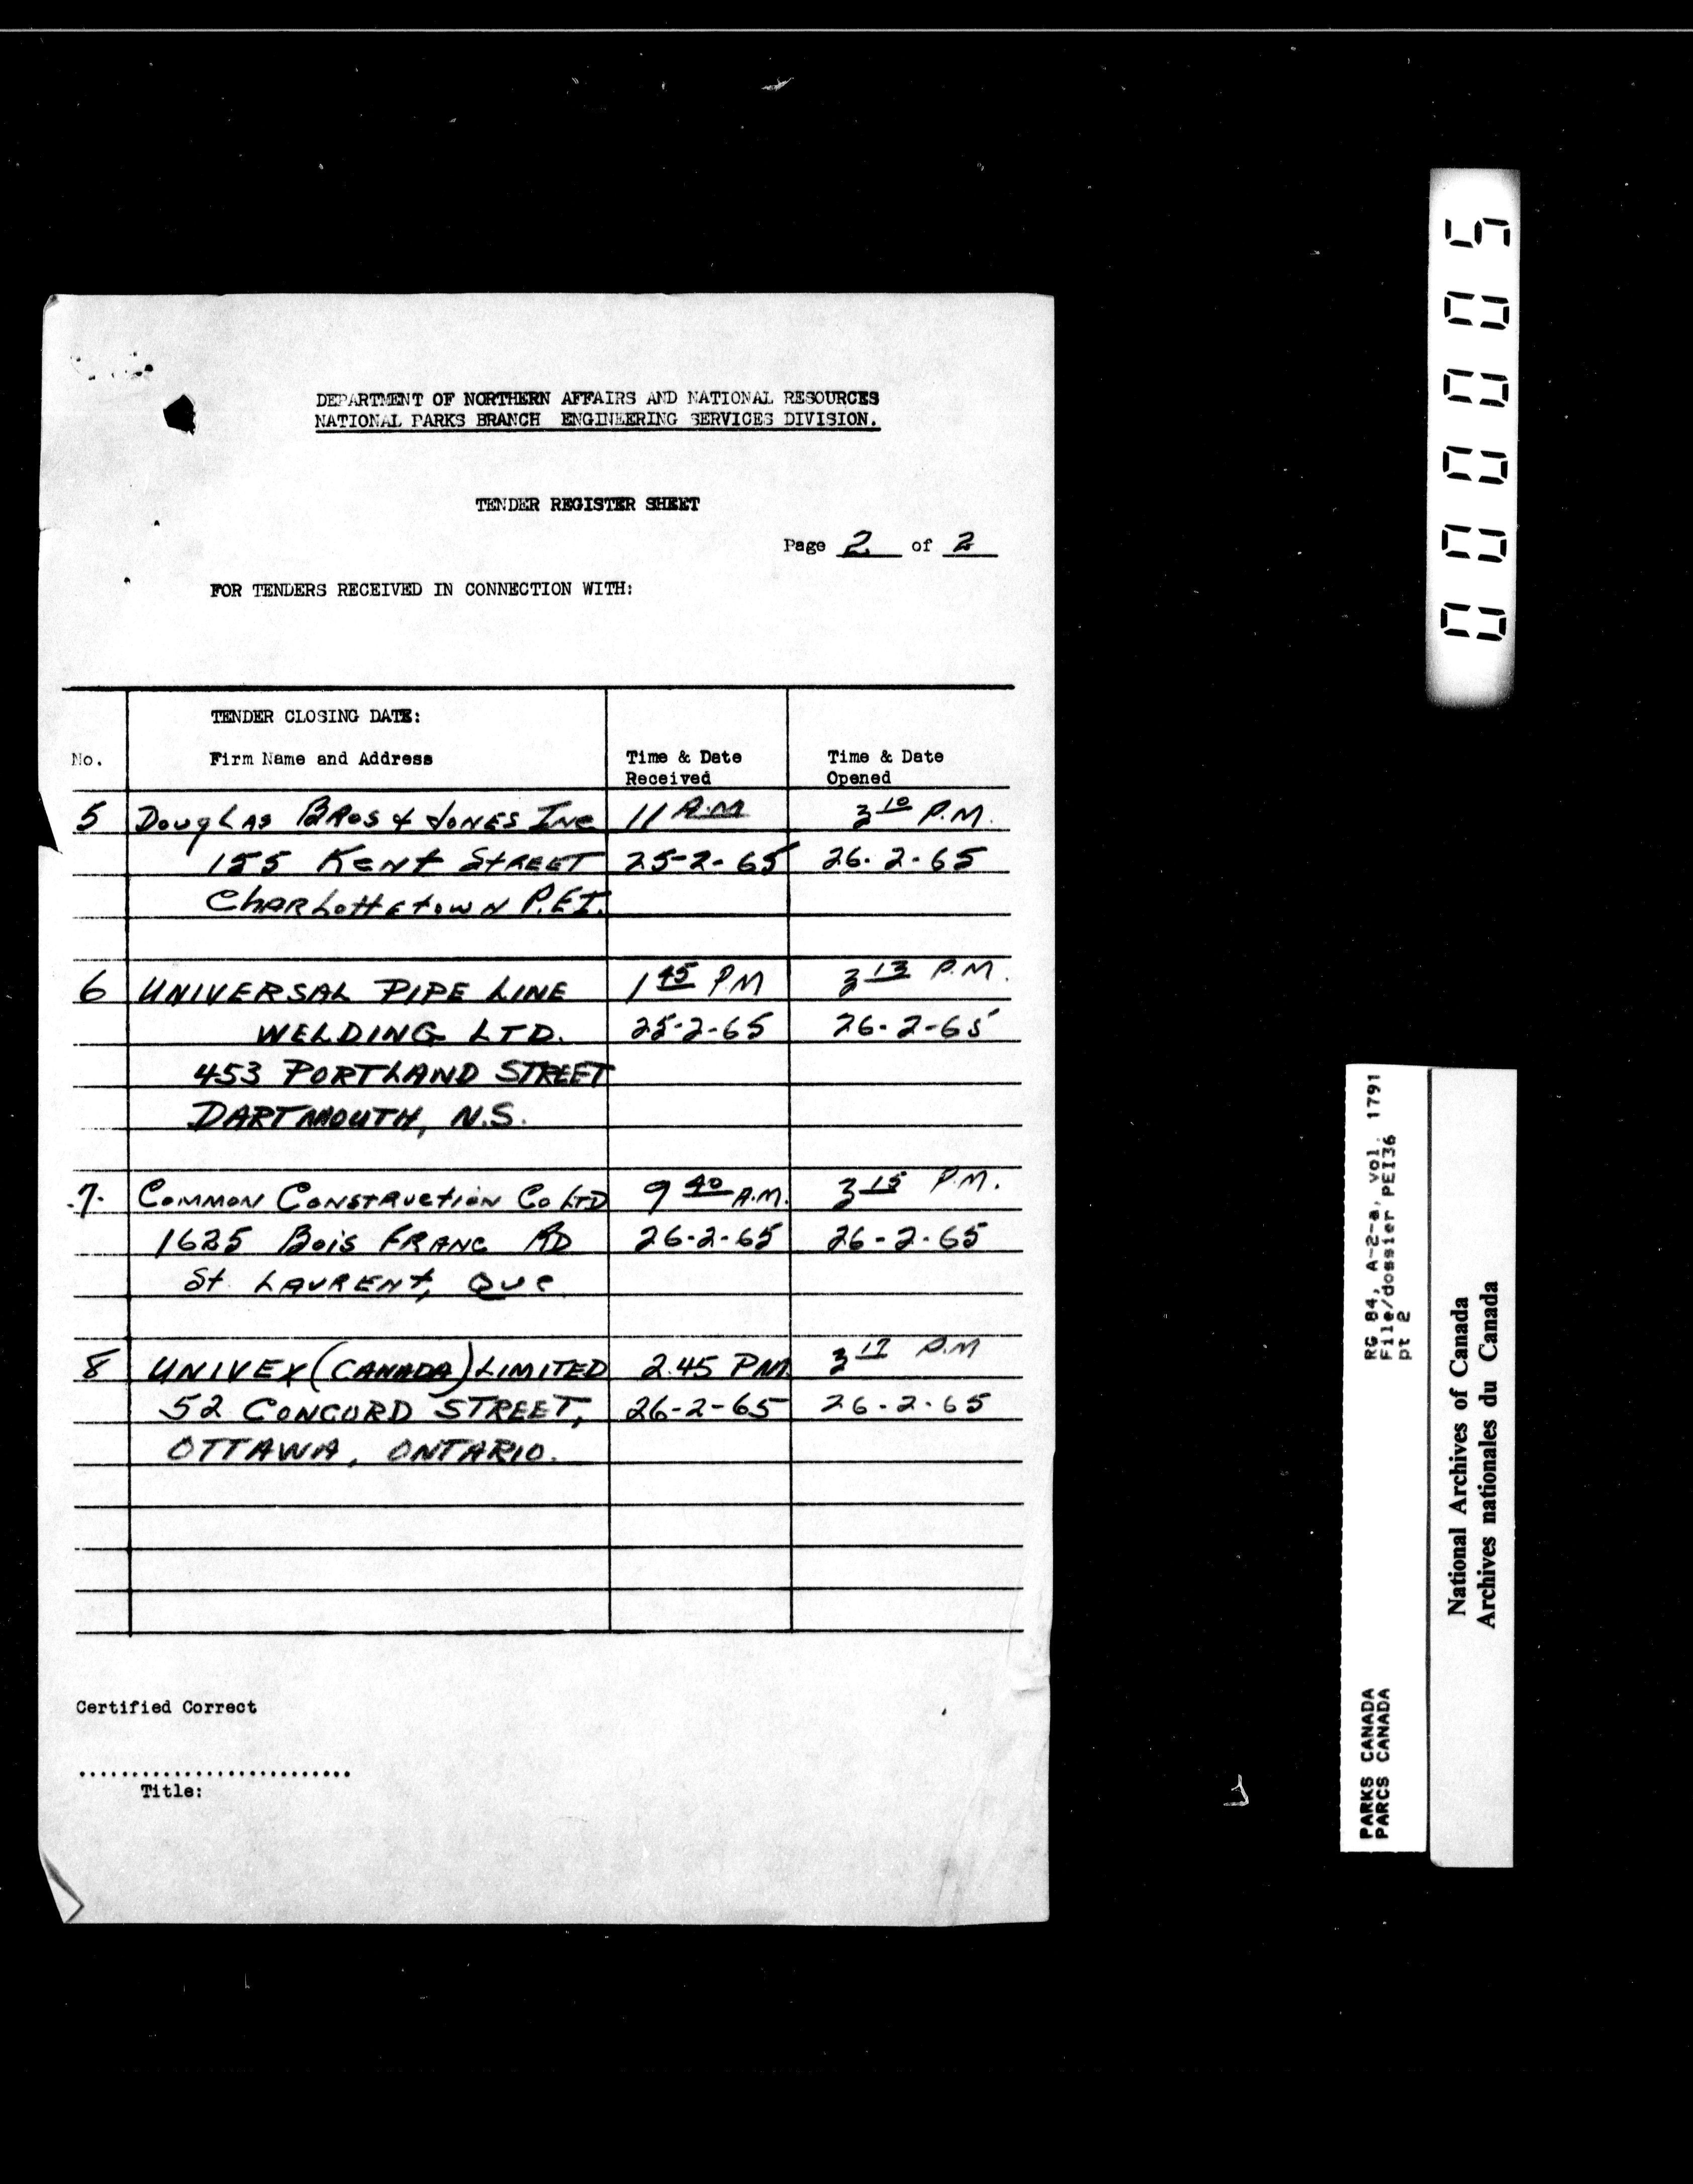 DEPARTMENT OF NORTHERN AFFAIRS AND NATIONAL RESOURCES
NATIONAL PARKS BRANCH ENGINEERING SERVICES DIVISION.
TENDER REGISTER SHEET
Page 2 of 2
FOR TENDERS RECEIVED IN CONNECTION WITH:
TENDER CLOSING DATE:
No. Firm Name and Address Time & Date Time & Date
Received Opened
5 Douglas Bros & Jones Inc 11 A.M 3 10 P.M.
155 Kent Street 25-2-65 26-2-65
Charlottetown P.E.I.
6 UNIVERSAL PIPE LINE 1 45 PM 3 13 P.M.
WELDING LTD. 25-2-65 26-2-65
453 PORTLAND STREET
DARTMOUTH, N.S.
7. Common Construction Co LTD 9 40 A.M. 3 15 P.M.
1625 Bois FRANC RD 26-2-65 26-2-65
St. LAURENT, Que
8 UNIVEX (CANADA) LIMITED 2.45 PM. 3 17 P.M
52 CONCORD STREET, 26-2-65 26-2-65
OTTAWA, ONTARIO.
Certified Correct
Title:
000005
RG 84, A-2-a, vol. 1791
File/dossier PEI36
pt 2
PARKS CANADA
PARCS CANADA
National Archives of Canada
Archives nationales du Canada